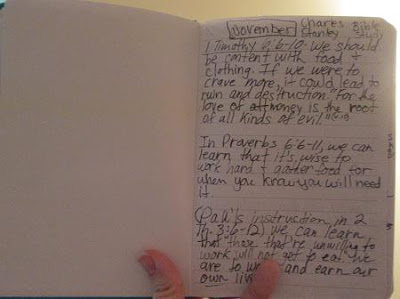 November Charles Stanley Bible Study
1 Timothy 6:6-10: We should
be content with food +
clothing. If we were to
crave more, it could lead to
ruin and destruction "For the
love of money is the root
of all kinds of evil."
In Proverbs 6:6-11, we can
learn that it's wise to
work hard + gather food for
when you know you will need
it.
(Paul's instruction in 2
Th. 3:6-12) We can learn
that those that're unwilling to
work will not get to eat. We
are to and earn our
own